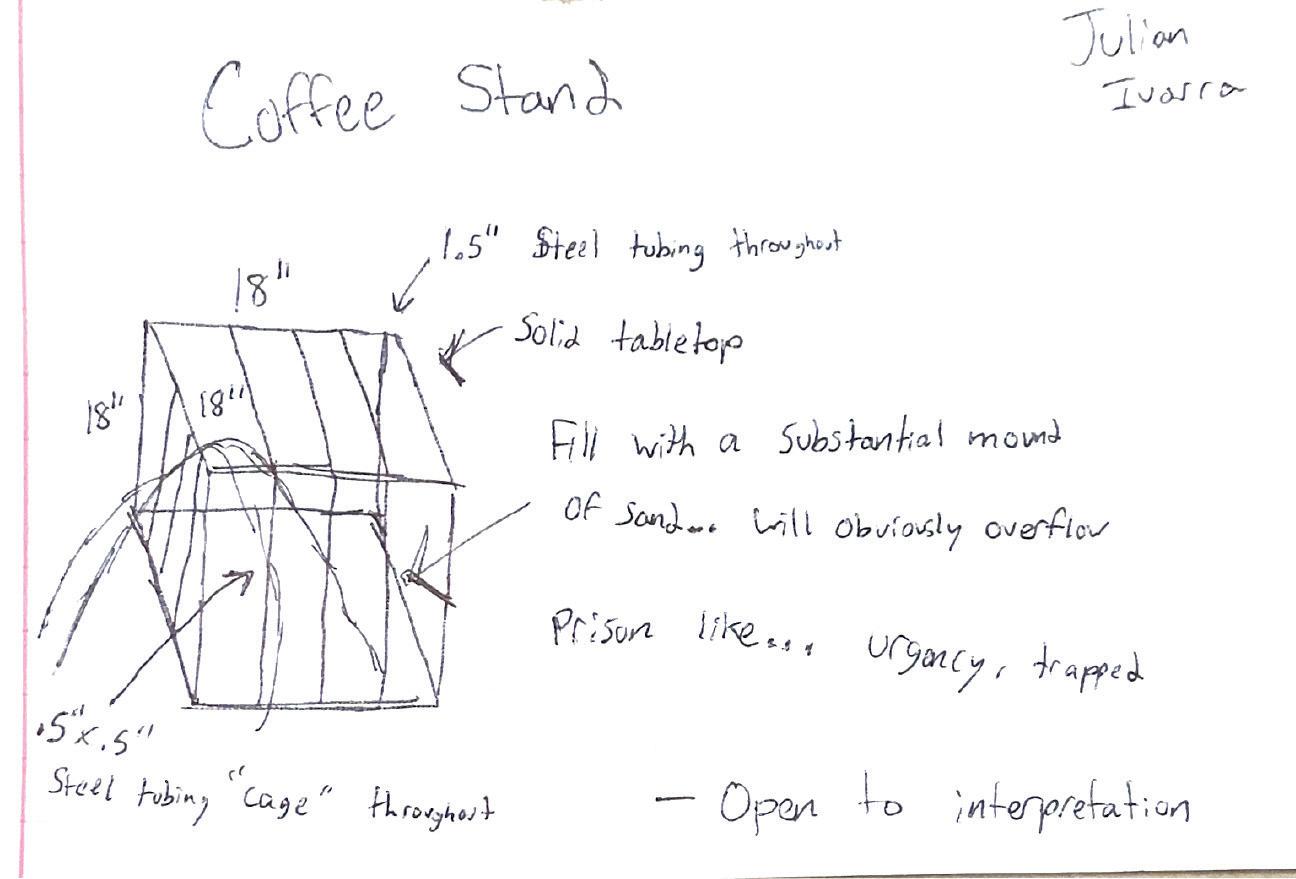 Julian
Ivarra
Coffee Stand
1.5" Steel tubing throughout
18"
Solid tabletop
18"
18"
Fill with a substantial mound
of sand... will obviously overflow
Prison like.... urgency, trapped
.5" x .5"
Steel tubing "cage" throughout
— Open to interpretation